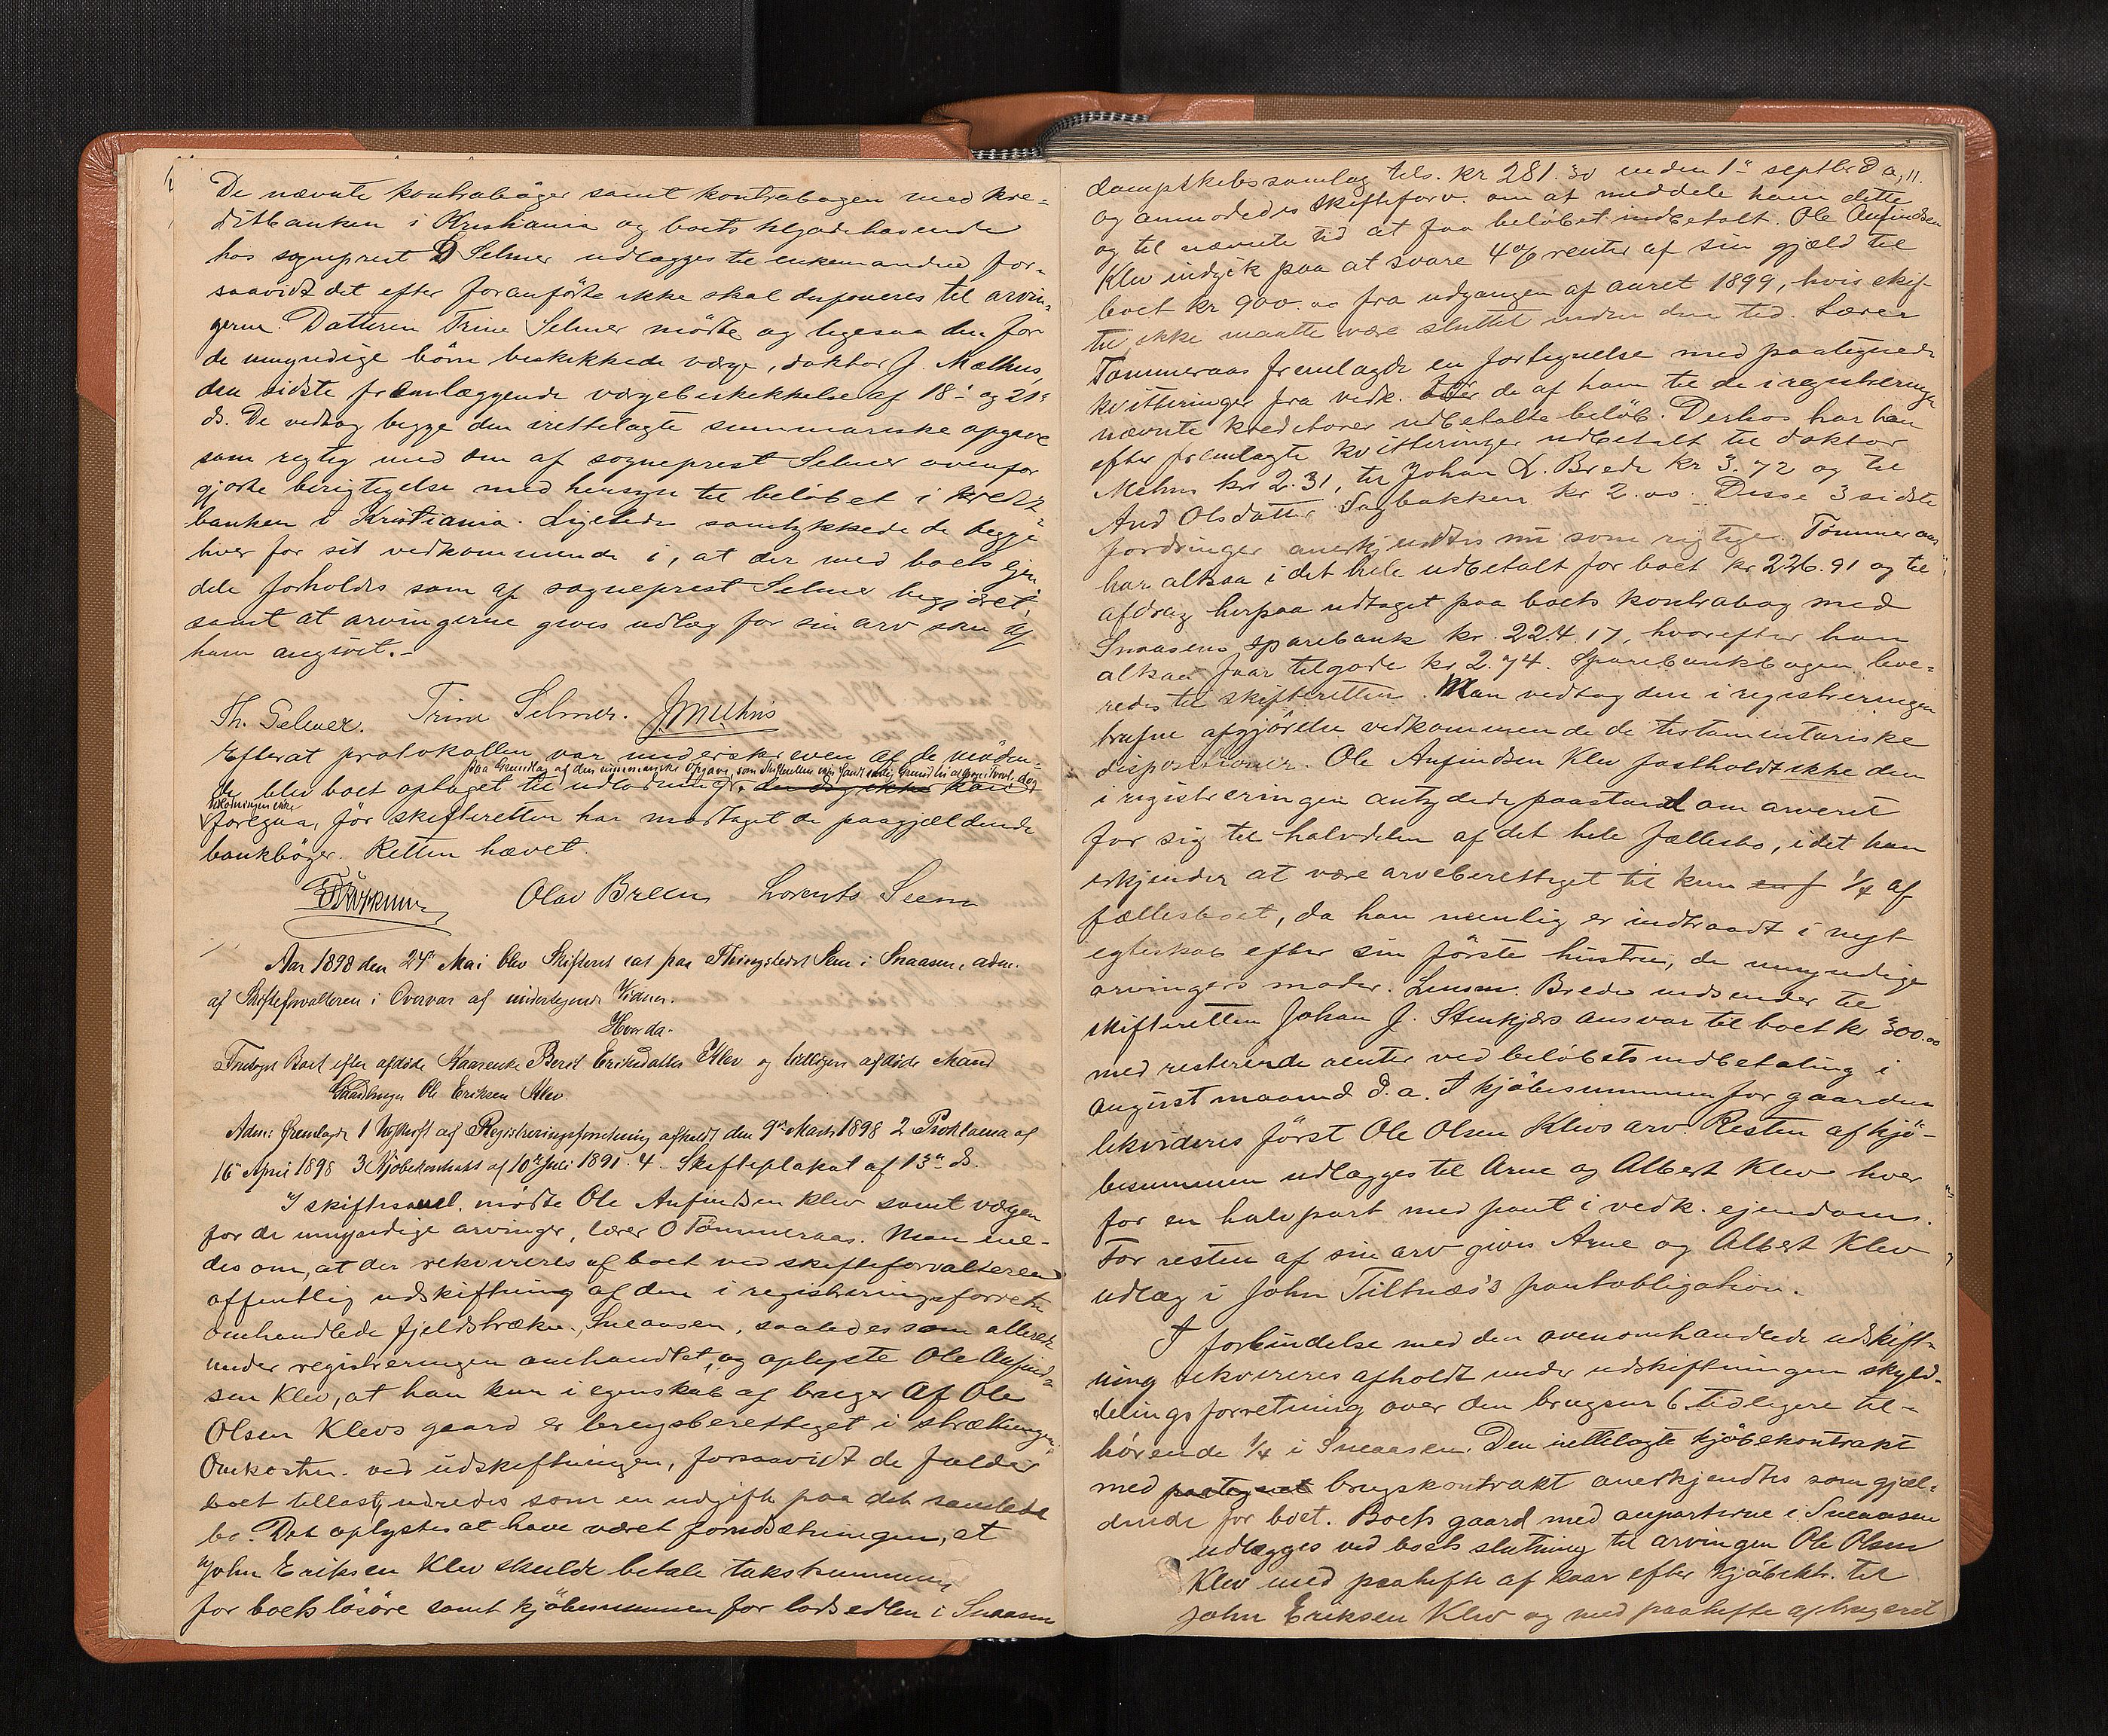 De nævnte kontrabøger samt kontrabogen med kre-
ditbanken i Kristiania og boets tilgodehavende
hos sogneprest Selmer udlægges til enkemanden for-
saavidt det efter foranførte ikke skal disponeres til arvin-
gerne. Datteren Trine Selmer mødte og ligesaa den for
de umyndige børn beskikkede værge, doktor J. Mælhus,
den sidste fremlæggende værgebeskikkelse af 18de og 21de
ds. De vedtog begge den irettelagte summariske opgave
som rigtig med den af sogneprest Selmer ovenfor
gjorte berigtigelse med hensyn til beløbet i kredit-
banken i Kristiania. Ligeledes samtykkede de begge
hver for sit vedkommende i, at der med boets eien-
dele forholdes som af sogneprest Selmer begjæret,
samt at arvingerne gives udlæg for sin arv som af
ham angivet.-
Th. Selmer. Trine Selmer. J Mælhus
Efterat protokollen var underskreven af de møden-
paa Grundlag af den summariske Opgave, som Skifteretten
de blev boet optaget til udlodning, den dog ikke kan
udlodningen ikke
foregaa, før skifteretten har modtaget de paagjældende
bankbøger. Retten hævet.
Olav Breen Lorents Seem
Aar 1898 den 24de Mai blev Skifteret sat paa Thingstedet Sem i Snaasen, adm.
af Skifteforvalteren i Overvær af undertegnede Vidner.
Hvorda:
Foretoges Boet efter afdøde Kaarenke Berit Eriksdatter Klev og tidligere afdøde Mand
Gaardbruger Ole Eriksen Klev.
Adm: fremlagde 1 Udskrift af Registreringsforretning afholdt den 9de Marts 1898 2 Proklama af
16de April 1898 3 Kjøbekontrakt af 10de Juli 1891. 4. Skifteplakat af 13de ds.
I skiftesaml. mødte Ole Anfindsen Klev samt værgen
for de umyndige arvinger, lærer O Tømmeraas. Man ene-
des om, at der rekvireres af boet ved skifteforvalteren
offentlig udskiftning af den i registreringsforretn.
omhandlede fjeldstrækn., Sneaasen, saaledes som allerede
under registreringen omhandlet, og oplyste Ole Anfind-
sen Klev, at han kun i egenskab af bruger af Ole
Olsen Klevs gaard er brugsberettiget i strækningen.
Omkostn. ved udskiftningen, forsaavidt de falder
boet tillast, udredes som en udgift paa det samlede
bo. Det oplystes at have været forudsætningen, at
John Eriksen Klev skulde betale takstsummen
for boets løsøre samt kjøbesummen for lodsedlen i Snaasen
dampskibssamlag tils. kr 281.30 inden 1ste septbr d a,
og anmodedes skifteforv. om at meddele ham dette
og til nævnte tid at faa beløbet indbetalt. Ole Anfindsen
Klev indgik paa at svare 4 % renter af sin gjæld til
boet kr 900.00 fra udgangen af aaret 1899, hvis skif-
tet ikke maatte være sluttet inden den tid. Lærer
Tømmeraas fremlagde en fortegnelse med paategnede
kvitteringer fra vedk. over de af ham til de i registreringen
nævnte kreditorer udbetalte beløb. Derhos har han
efter fremlagte kvitteringer udbetalt til doktor
Mælhus kr 2.31, til Johan L. Brede kr 3.72 og til
And Olsdatter Sagbakken kr 2.00. Disse 3 sidste
fordringer anerkjendtes nu som rigtige. Tømmeraas
har altsaa i det hele udbetalt for boet kr 226.91 og til
afdrag herpaa udtaget paa boets kontrabog med
Snaasens sparebank kr. 224.17, hvorefter han
altsaa faar tilgode kr 2.74. Sparebankbogen leve-
redes til skifteretten. Man vedtog den i registreringen
trufne afgjørelse vedkommende de testamentariske
dispositioner. Ole Anfindsen Klev fastholdt ikke den
i registreringen antydede paastand om arveret
for sig til halvdelen af det hele fællesbo, idet han
erkjender at være arveberettiget til kun en f 1/4 af
fællesboet, da han nemlig er indtraadt i nyt
egteskab efter sin første hustru, de umyndige
arvingers moder. Lensm. Brede indsender til
skifteretten Johan J. Stenkjærs ansvar til boet kr 300.00
med resterende renter ved beløbets indbetaling i
august maaned d. a. I kjøbesummen for gaarden
likvideres først Ole Olsen Klevs arv. Resten af kjø-
besummen udlægges til Arne og Albert Klev hver
for en halvpart med pant i vedk. eiendom.
For resten af sin arv gives Arne og Albert Klev
udlæg i John Tiltnæs's pantobligation.
I forbindelse med den ovenomhandlede udskift-
ning rekvireres afholdt under udskiftningen skyld-
delingsforretning over den brugsnr 6 tidligere til-
hørende 1/4 i Sneaasen. Den irettelagte kjøbekontrakt
med paategnet brugskontrakt anerkjendtes som gjæl-
dende for boet. Boets gaard med anparterne i Sneaasen
udlægges ved boets slutning til arvingen Ole Olsen
Klev med paahefte af kaar efter kjøbektr. til
John Eriksen Klev og med paahefte af brugsret